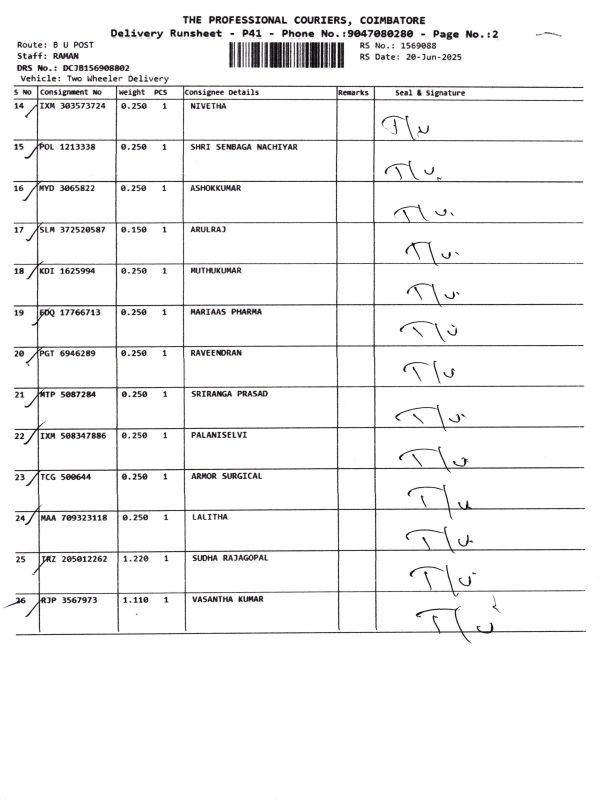 THE PROFESSIONAL COURIERS, COIMBATORE
Delivery Runsheet - P41 - Phone No.:9047080280 - Page No.:2
Route: B U POST RS No.: 1569088
Staff: RAMAN RS Date: 20-Jun-2025
DRS No.: DCJB156908802
Vehicle: Two Wheeler Delivery
S No Consignment No Weight PCS Consignee Details Remarks Seal & Signature
14 IXM 303573724 0.250 1 NIVETHA
15 POL 1213338 0.250 1 SHRI SENBAGA NACHIYAR
16 MYD 3065822 0.250 1 ASHOKKUMAR
17 SLM 372520587 0.150 1 ARULRAJ
18 KDI 1625994 0.250 1 MUTHUKUMAR
19 17766713 0.250 1 MARIAAS PHARMA
20 PGT 6946289 0.250 1 RAVEENDRAN
21 MTP 5087284 0.250 1 SRIRANGA PRASAD
22 IXM 508347886 0.250 1 PALANISELVI
23 TCG 500644 0.250 1 ARMOR SURGICAL
24 MAA 709323118 0.250 1 LALITHA
25 TRZ 205012262 1.220 1 SUDHA RAJAGOPAL
26 RJP 3567973 1.110 1 VASANTHA KUMAR